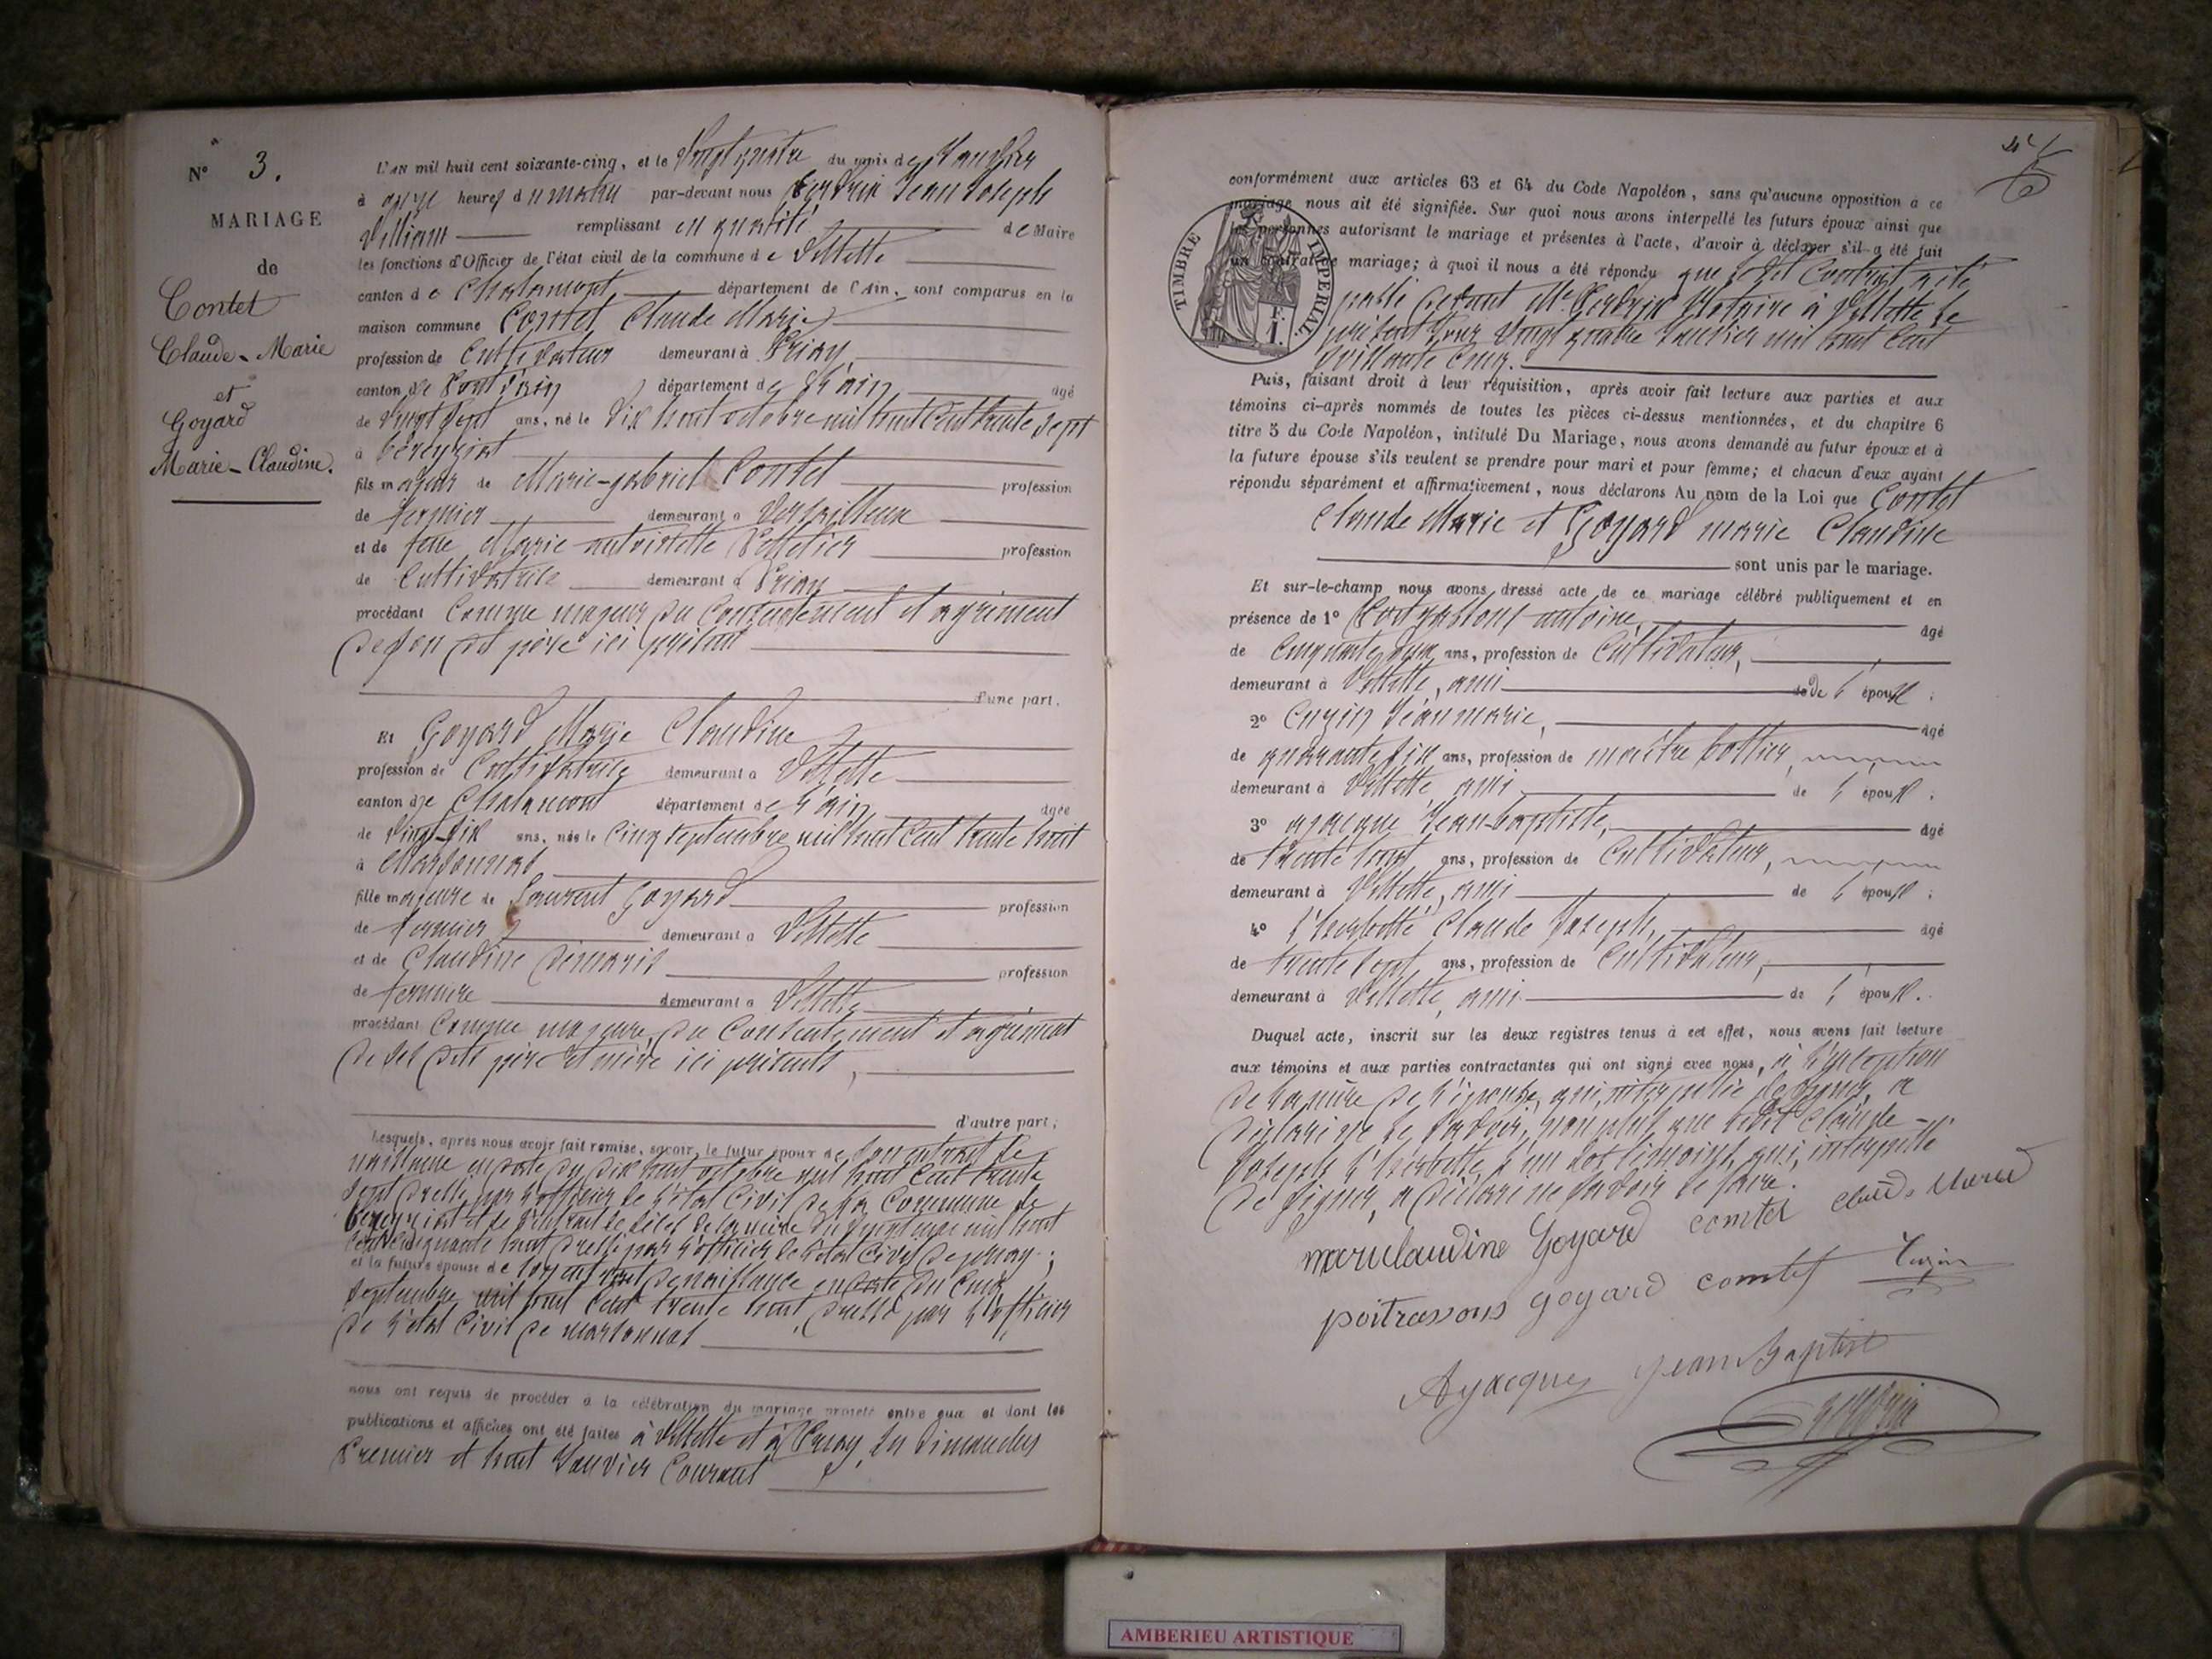 N° 3.
MARIAGE
de
Contet
Claude-Marie
et
Goyard
Marie-Claudine.
L'AN mil huit cent soixante-cinq, et le Vingt quatre du mois de Janvier
à onze heures du matin par-devant nous Jean Joseph
William remplissant en qualité de Maire
les fonctions d'Officier de l'état civil de la commune de Villette
canton de Chalamont département de l'Ain, sont comparus en la
maison commune Contet Claude Marie
profession de Cultivateur demeurant à Priay
canton de Pont d'ain département de l'ain âgé
de vingt sept ans, né le Dix huit octobre mil huit cent trente sept
à Béreyziat
fils majeur de Marie-gabriel Contet profession
de fermier demeurant à Versailleux
et de feue Marie antoinette Pelletier profession
de Cultivatrice demeurant à Priay
procédant Comme majeur du Consentement et agrément
de son dit père ici présent
d'une part.
Et Goyard Marie Claudine
profession de Cultivatrice demeurant à Villette
canton de Chalamont département de l'ain âgée
de vingt-six ans, née le Cinq septembre mil huit cent trente huit
à Marsonnas
fille majeure de Laurent Goyard profession
de fermier demeurant à Villette
et de Claudine profession
de fermière demeurant à Villette
procédant Comme majeure, du Consentement et agrément
de ses dits père et mère ici présents,
d'autre part;
Lesquels, après nous avoir fait remise, savoir, le futur époux de son extrait de
naissance en date du dix huit octobre mil huit cent trente
sept dressé par l'officier de l'état Civil de la Commune de
Béreyziat et de l'extrait de décès de la mère du mil huit
cent cinquante huit dressé par l'officier de l'état Civil de priay;
et la future épouse de son extrait de naissance en date du Cinq
Septembre mil huit Cent trente huit, dressé par l'officier
de l'état Civil de marsonnas
nous ont requis de procéder à la célébration du mariage projeté entre eux et dont les
publications et affiches ont été faites à Villette et à Priay, les dimanches
Premier et huit Janvier Courant
conformément aux articles 63 et 64 du Code Napoléon, sans qu'aucune opposition à ce
mariage nous ait été signifiée. Sur quoi nous avons interpellé les futurs époux ainsi que
les personnes autorisant le mariage et présentes à l'acte, d'avoir à déclarer s'il a été fait
un contrat de mariage; à quoi il nous a été répondu que ledit Contrat a été
TIMBRE IMPERIAL.
passé devant Me notaire à Villette le
présent jour vingt quatre Janvier mil huit cent
soixante cinq.
Puis, faisant droit à leur réquisition, après avoir fait lecture aux parties et aux
témoins ci-après nommés de toutes les pièces ci-dessus mentionnées, et du chapitre 6
titre 5 du Code Napoléon, intitulé Du Mariage, nous avons demandé au futur époux et à
la future épouse s'ils veulent se prendre pour mari et pour femme; et chacun d'eux ayant
répondu séparément et affirmativement, nous déclarons Au nom de la Loi que Contet
Claude Marie et Goyard marie Claudine
sont unis par le mariage.
Et sur-le-champ nous avons dressé acte de ce mariage célébré publiquement et en
présence de 1° antoine, âgé
de Cinquante ans, profession de Cultivateur,
demeurant à Villette, ami de l'époux;
2° Cuzin Jean marie, âgé
de quarante six ans, profession de maître bottier,
demeurant à Villette, ami de l'époux;
3° ajacque Jean-baptiste, âgé
de trente huit ans, profession de Cultivateur,
demeurant à Villette, ami de l'époux;
4° l'herbette Claude Joseph, âgé
de trente sept ans, profession de Cultivateur,
demeurant à Villette, ami de l'époux.
Duquel acte, inscrit sur les deux registres tenus à cet effet, nous avons fait lecture
aux témoins et aux parties contractantes qui ont signé avec nous, à l'exception
de la mère de l'épouse, qui, interpellée de signer, a
déclaré ne le savoir, non plus que ledit Claude-
Joseph l'herbette, l'un des témoins, qui, interpellé
de signer, a déclaré ne savoir le faire.
marieclaudine Goyard contet claude Marie
poitrassons goyard contet Cuzin
Ajacques jean Baptiste
AMBERIEU ARTISTIQUE